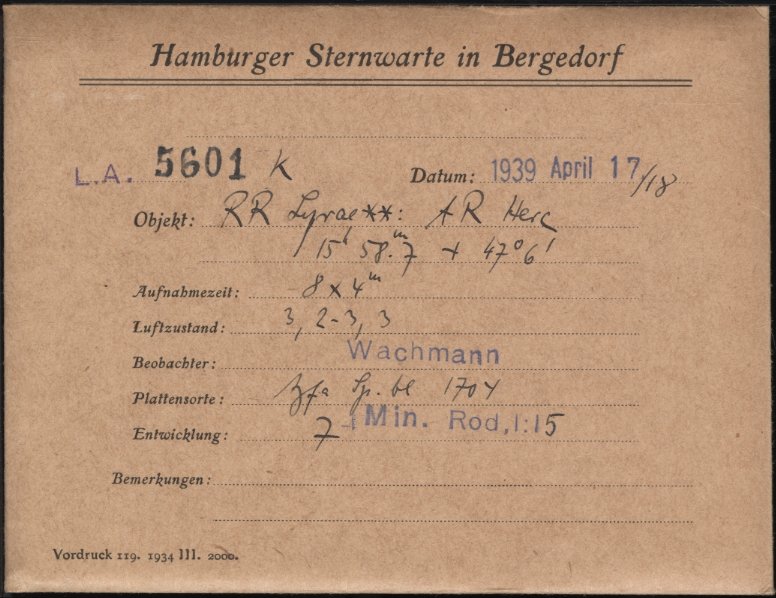 Hamburger Sternwarte in Bergedorf
L.A. 5601 K Datum: 1939 April 17/18
Objekt: RR Lyrae**: AR Herc
15h 58.m7 + 47°6'
Aufnahmezeit: 8 x 4m
Luftzustand: 3, 2-3, 3
Beobachter: Wachmann
Plattensorte: Agfa Sp. bl 1704
Entwicklung: 7 Min. Rod, 1:15
Bemerkungen:
Vordruck 119. 1934 III. 2000.